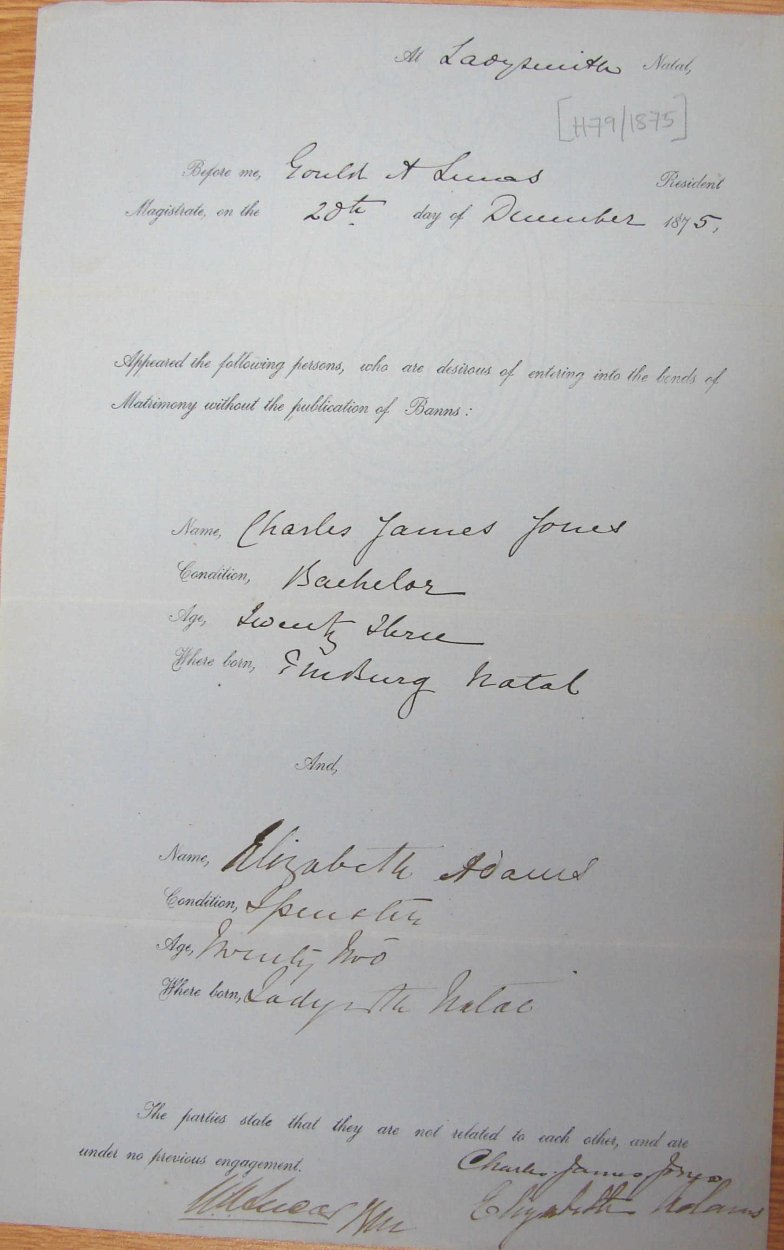 At Ladysmith Natal,
[H79/1875]
Before me, Gould A Lucas Resident
Magistrate, on the 20th day of December 1875,
Appeared the following persons, who are desirous of entering into the bonds of
Matrimony without the publication of Banns:
Name, Charles James Jones
Condition, Bachelor
Age, Twenty Three
Where born, Natal
And,
Name, Elizabeth Adams
Condition, Spinster
Age, Twenty Two
Where born, Ladysmith Natal
The parties state that they are not related to each other, and are
under no previous engagement.
Charles James Jones
Elizabeth Adams